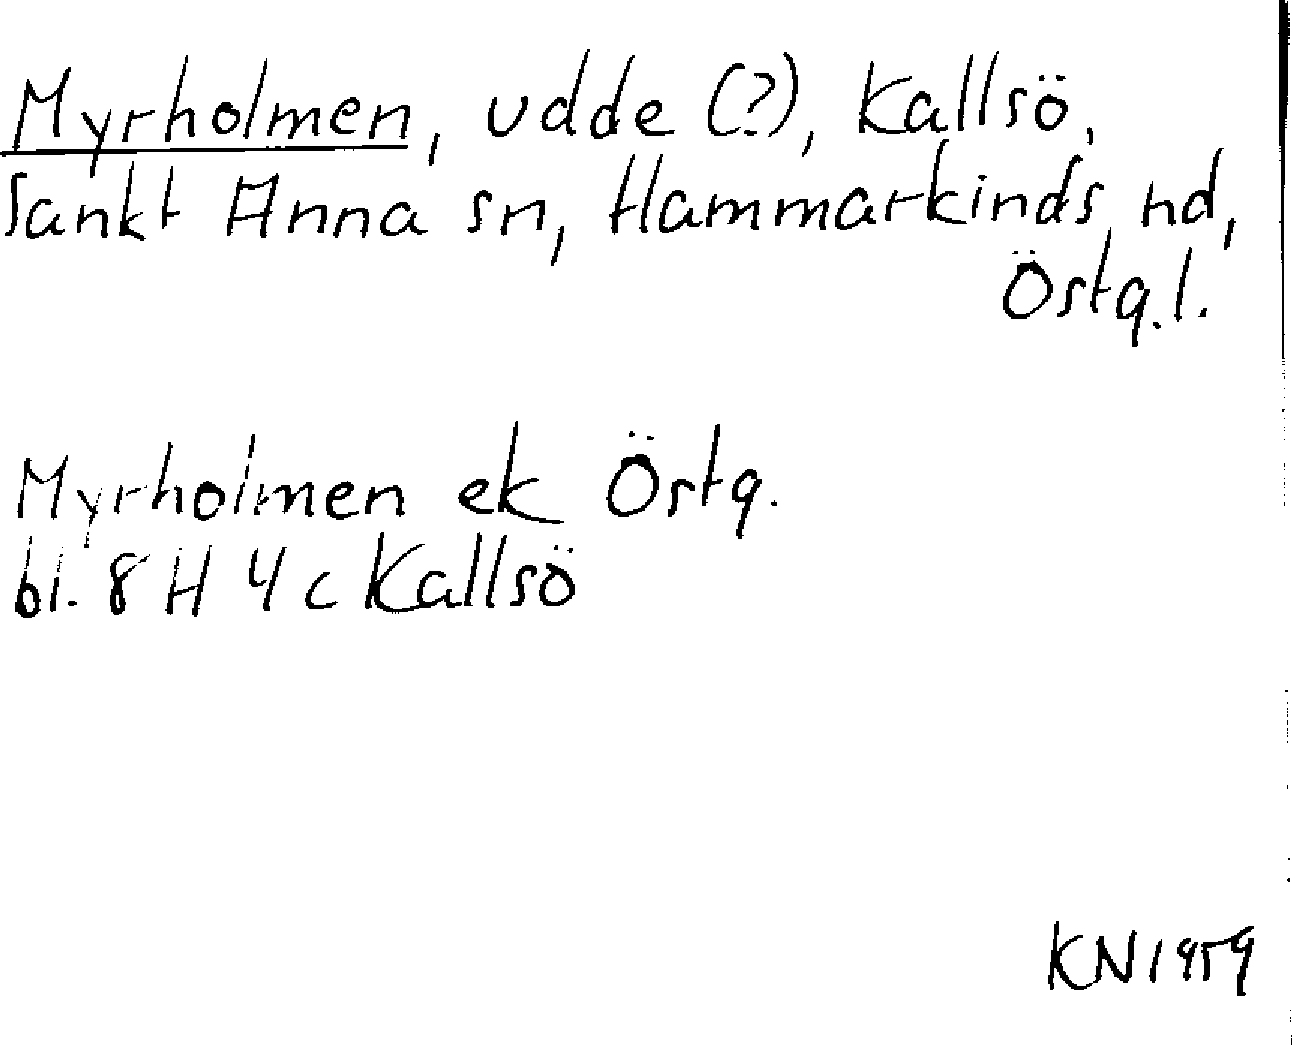 Myrholmen, udde (?), Kallsö,
Sankt Anna sn, Hammarkinds hd,
Östg.l.
Myrholmen ek Östg.
bl. 8 H 4 c Kallsö
KN 1959